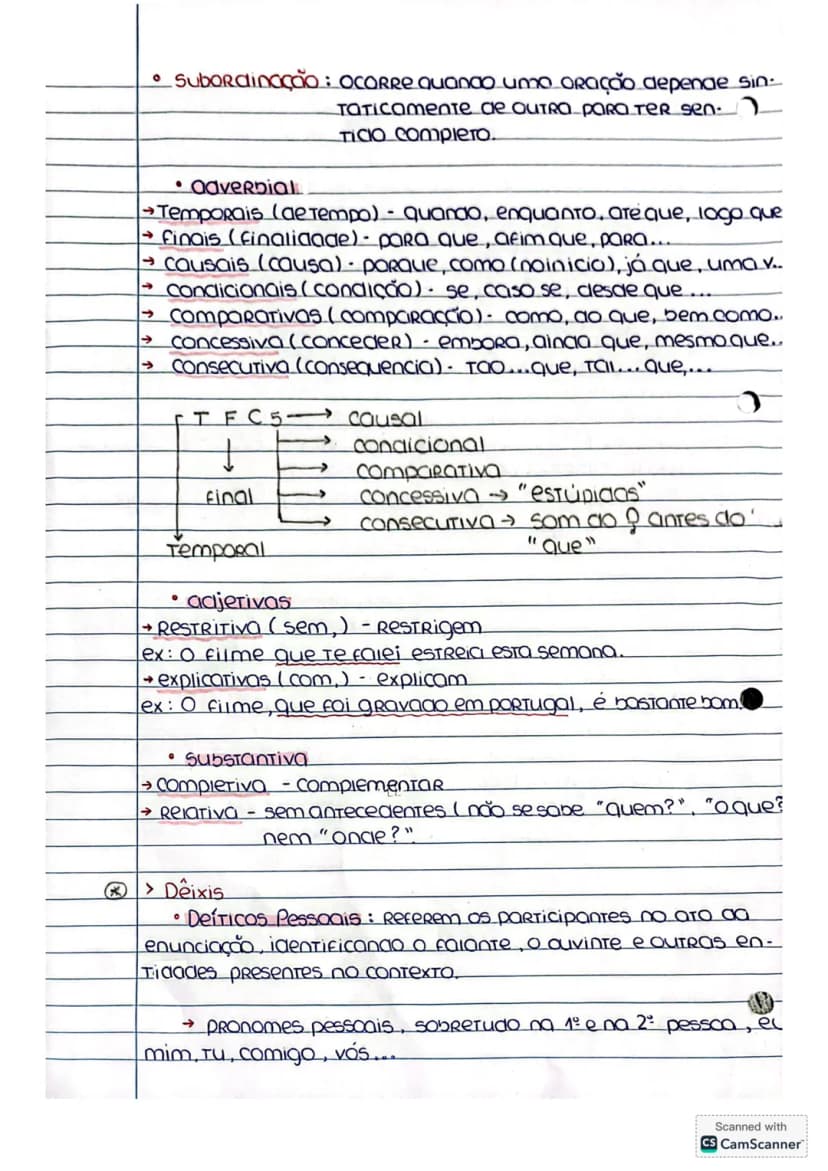 • Subordinação : ocorre quando uma oração depende sin-
taticamente de outra para ter sen-
tido completo.
• adverbial
→ Temporais (de tempo) - quando, enquanto, até que, logo que
→ finais (finalidade) - para que, afim que, para...
→ causais (causa) - porque, como (no início), já que, uma v..
→ condicionais (condição) - se, caso se, desde que ...
→ comparativas (comparação) - como, do que, bem como..
→ concessiva (conceder) - embora, ainda que, mesmo que..
→ consecutiva (consequencia) - Tão...que, Tal...que,...
T F C 5 → causal
→ condicional
→ comparativa
final → concessiva → "estúpidas"
→ consecutiva → som do ã antes do
Temporal "que"
• adjetivas
→ Restritiva (sem,) - Restrigem
ex: O filme que te falei estreia esta semana.
→ explicativas (com,) - explicam
ex: O filme, que foi gravado em Portugal, é bastante bom.
• Substantiva
→ completiva - complementar
→ Relativa - sem antecedentes (não se sabe "quem?", "o que?
nem "onde?".
> Dêixis
• Deíticos Pessoais : Referem os participantes no ato da
enunciação, identificando o falante, o ouvinte e outras en-
tidades presentes no contexto.
→ pronomes pessoais, sobretudo na 1ª e na 2ª pessoa, eu
mim, tu, comigo, vós...
Scanned with
CS CamScanner